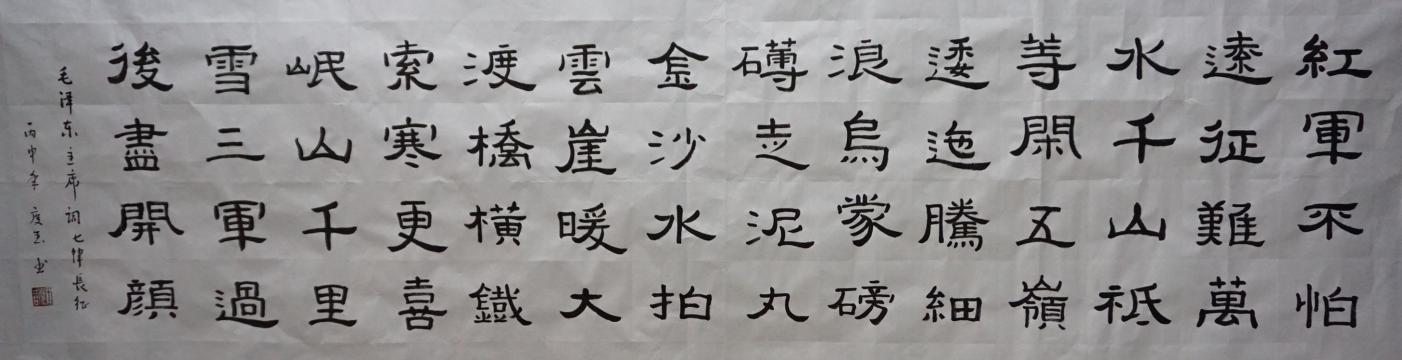 紅軍不怕
遠征難萬
水千山祗
等閑五嶺
逶迤騰細
浪烏蒙磅
礴走泥丸
金沙水拍
雲崖暖大
渡橋橫鐵
索寒更喜
岷山千里
雪三軍過
後盡開顔
毛泽东主席詞七律長征
丙申年 书